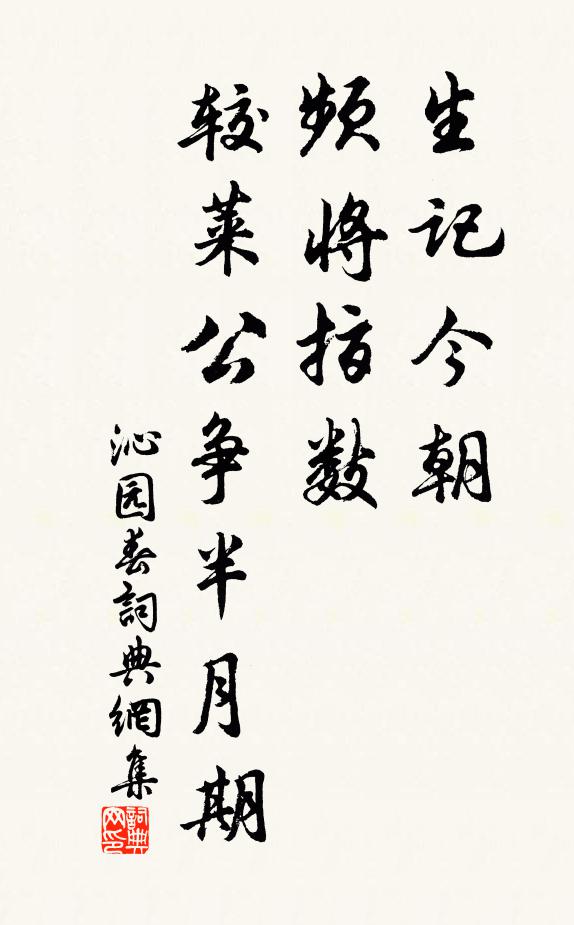 生记今朝
频将指数
较莱公争半月期
沁园春詞典網集
詞典
网印